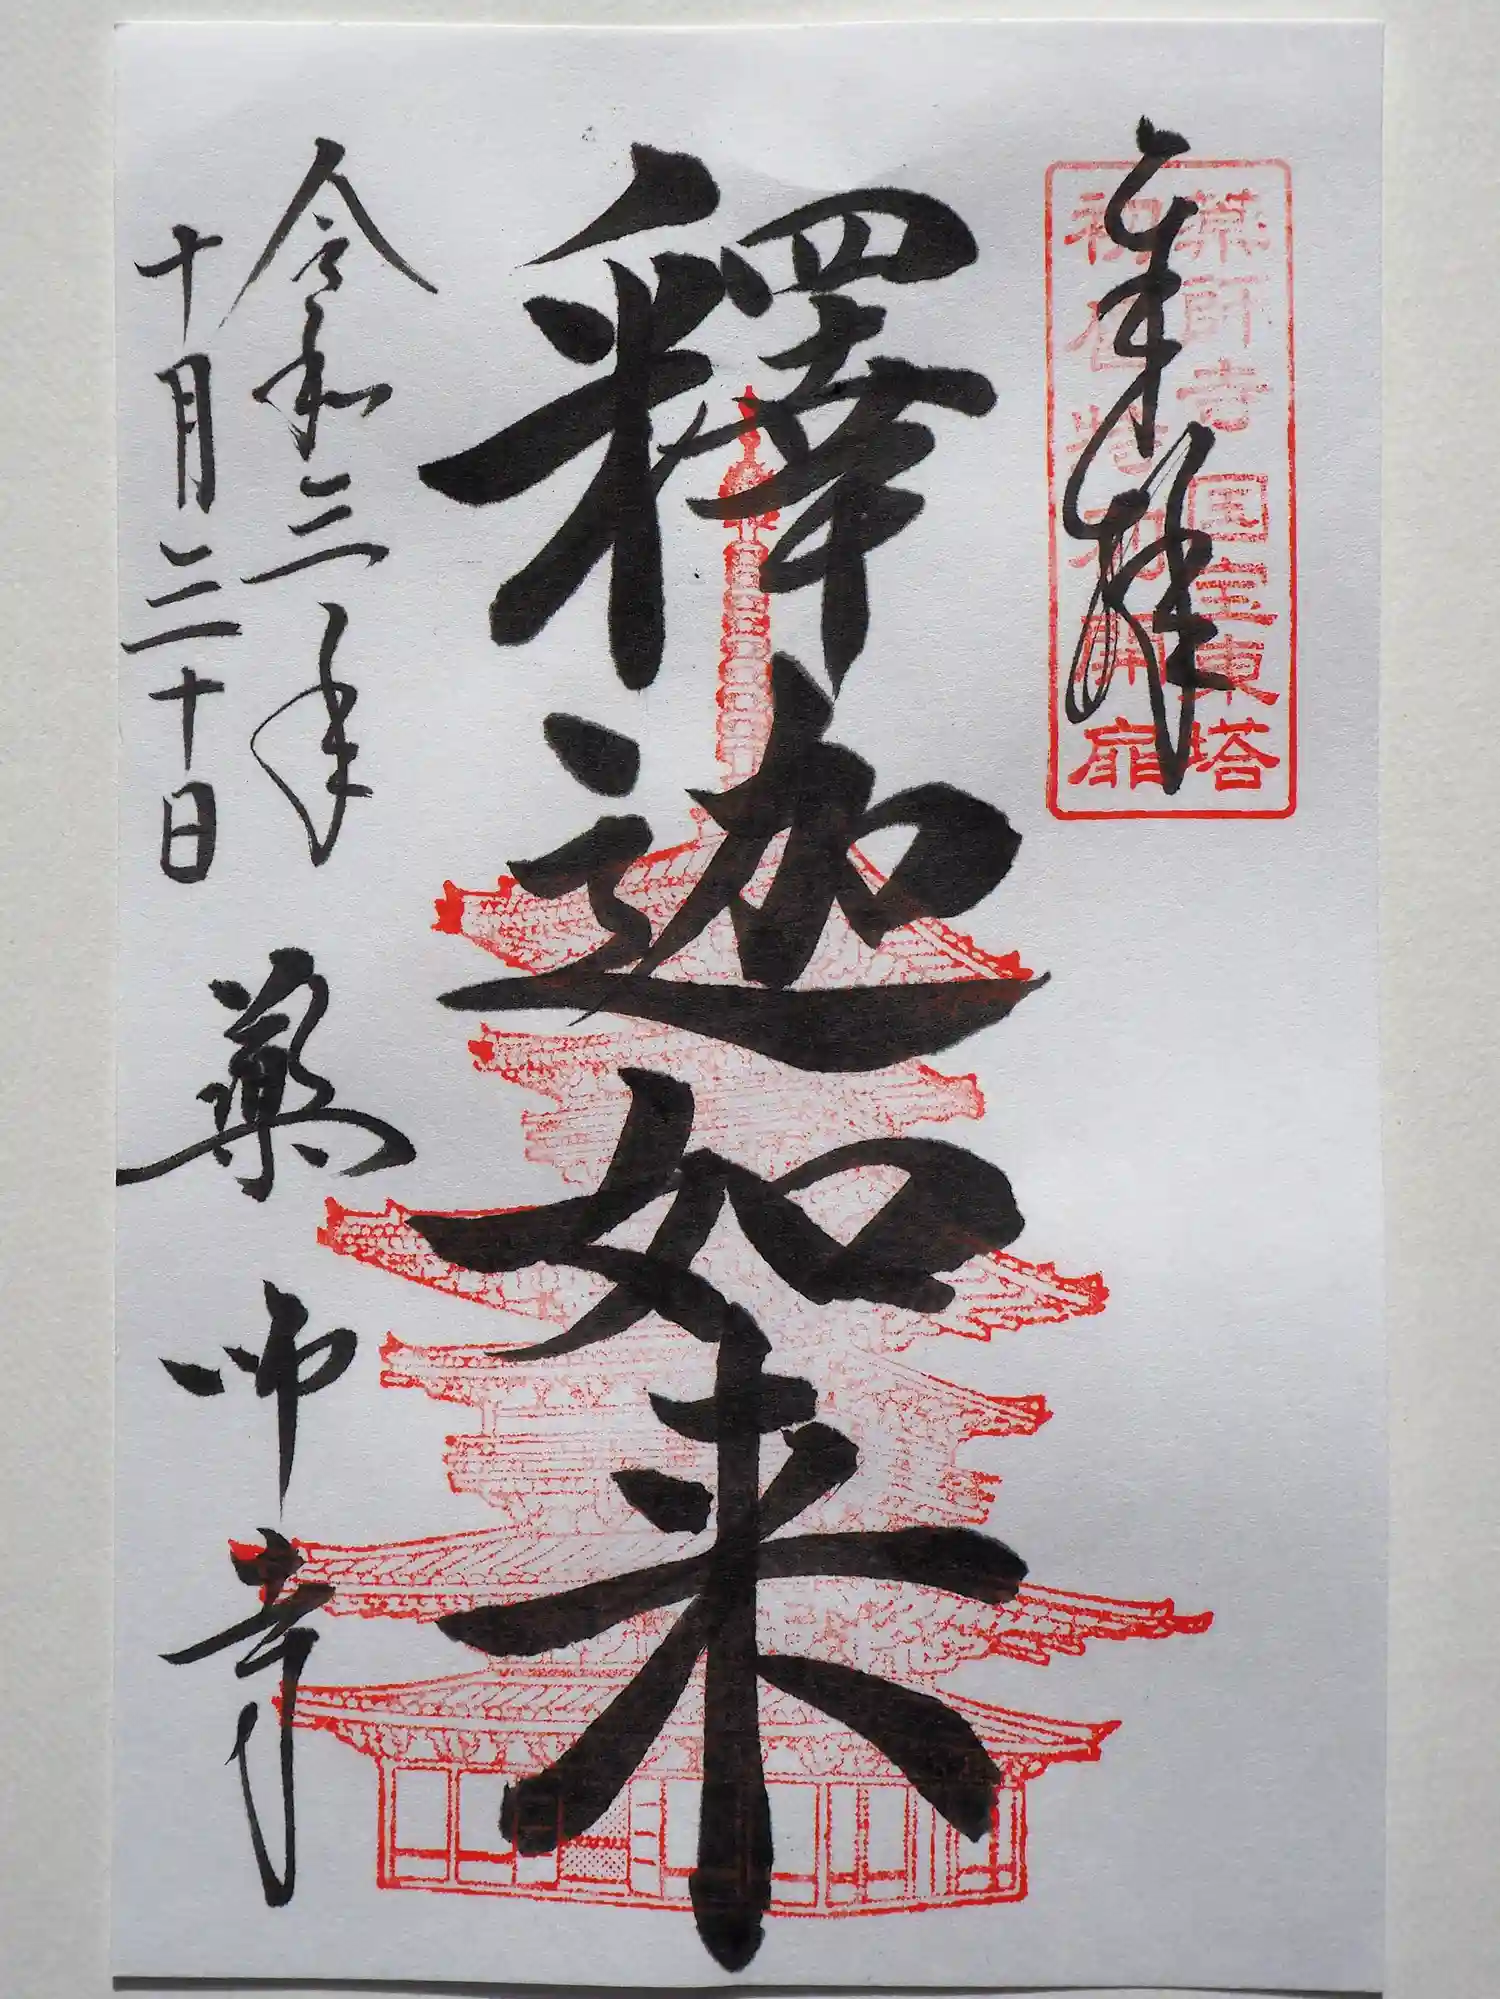 奉拝
薬師寺 国宝東塔
初層特別開扉
釋迦如来
令和三年
十月三十日
薬師寺